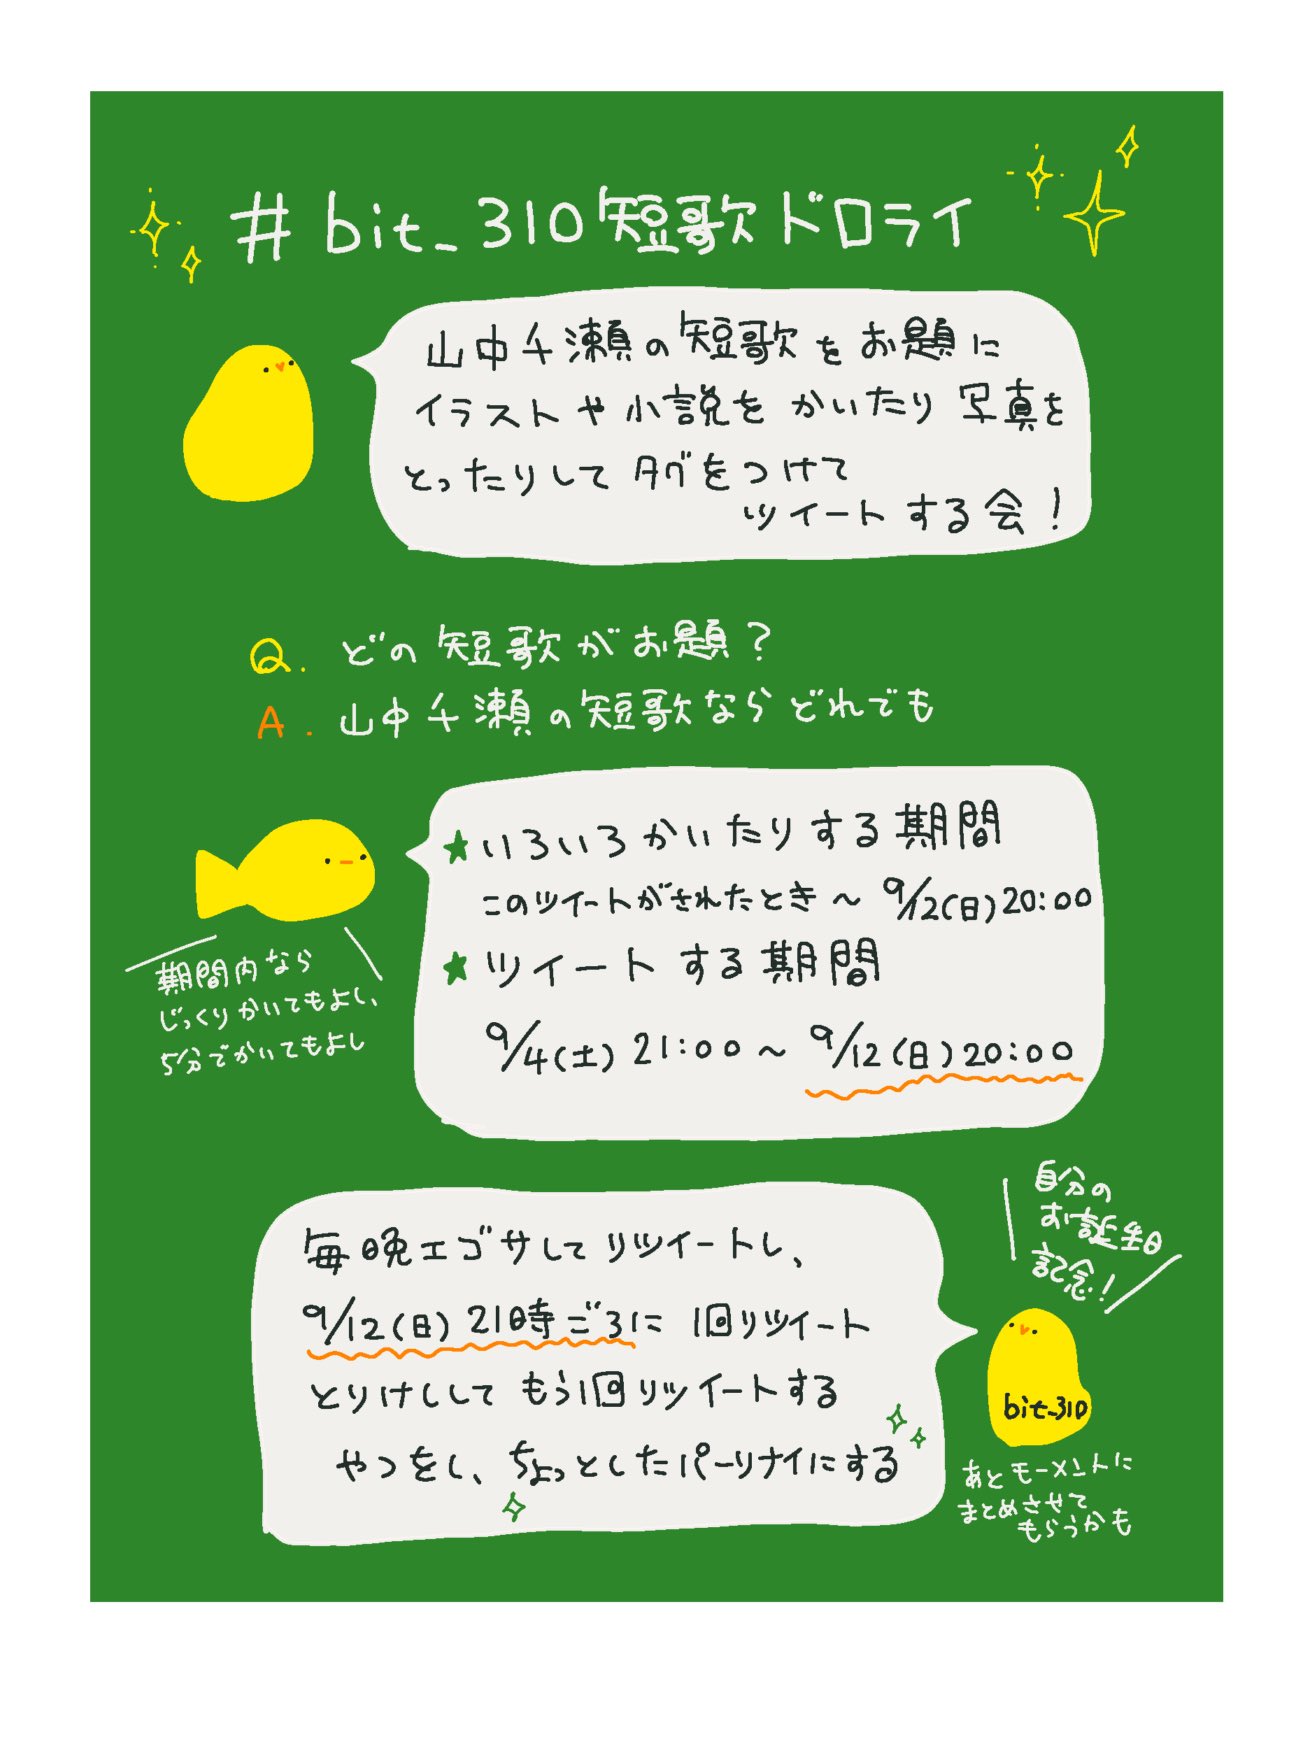 #bit_310短歌ドロライ
山中千瀬の短歌をお題に
イラストや小説をかいたり写真を
とったりしてタグをつけて
ツイートする会！
Q. どの短歌がお題？
A. 山中千瀬の短歌ならどれでも
★いろいろかいたりする期間
このツイートがされたとき〜9/12(日)20:00
★ツイートする期間
9/4(土)21:00〜9/12(日)20:00
期間内なら
じっくりかいてもよし、
5分でかいてもよし
自分の
お誕生日
記念！
毎晩エゴサしてリツイートし、
9/12(日)21時ごろに1回リツイート
とりけしてもう1回リツイートする
やつをし、ちょっとしたパーリナイにする
bit_310
あとモーメントに
まとめさせて
もらうかも